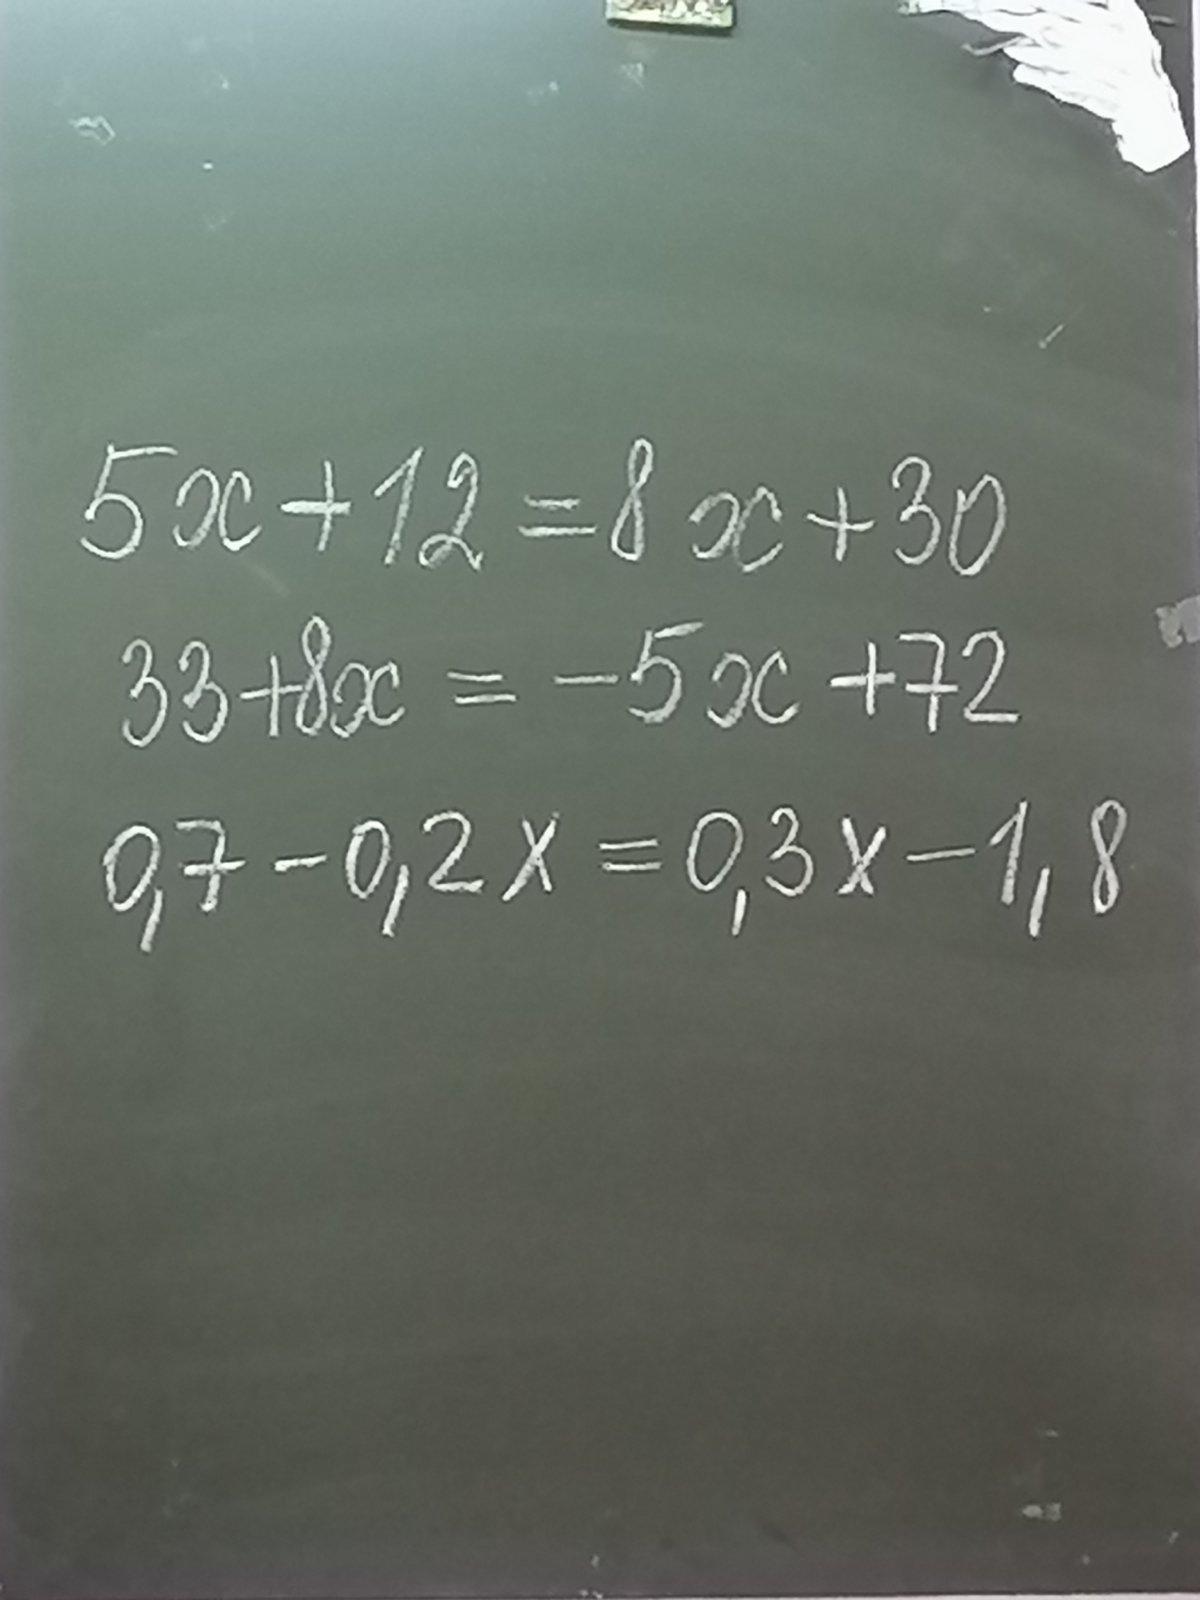 5x+12=8x+30
33+8x=-5x+72
0,7-0,2x=0,3x-1,8